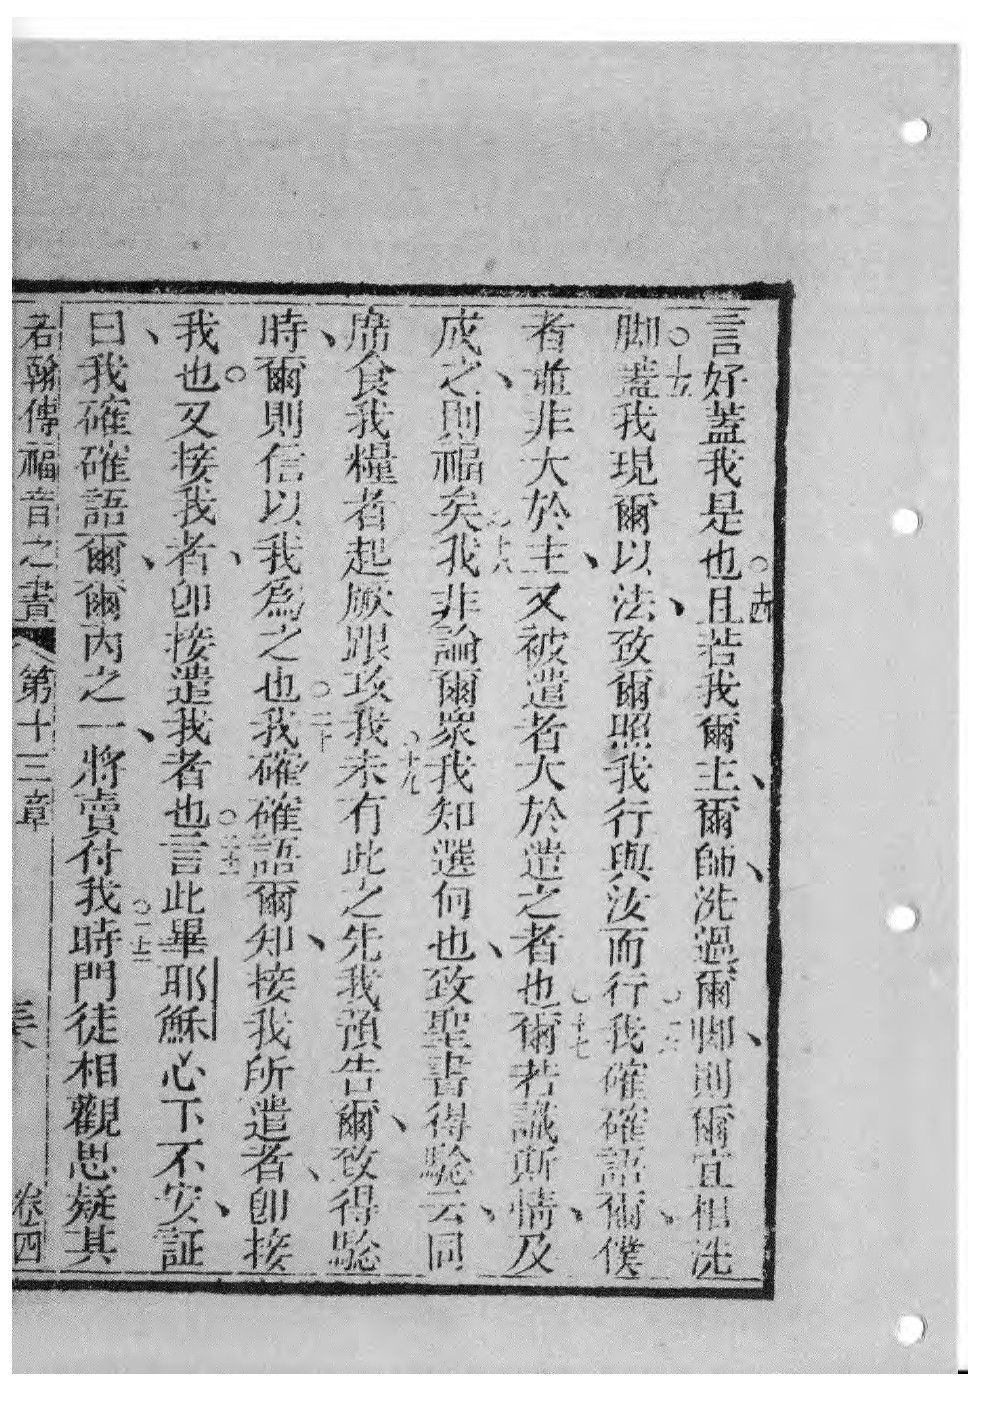 言好蓋我是也○十四且若我爾主、爾師、洗過爾脚、則爾宜相洗
脚○十五蓋我現爾以法、致爾照我行與汝而行○十六我確確語爾、僕
者並非大於主、又被遣者大於遣之者也○十七爾若識斯情、及
成之、則福矣○十八我非論爾衆我知選何也、致聖書得騐云、同
席食我糧者起厥跟垓我○十九未有此之先我預告爾、致得騐
時、爾則信以我為之也○二十我確確語爾知、接我所遣者、卽接
我也○又接我者、卽接遣我者也○二十一言此畢耶穌心下不安、証
曰、我確確語爾、爾內之一、將賣付我○二十二時門徒相觀思疑其
若翰傳福音之書 第十三章 卷四